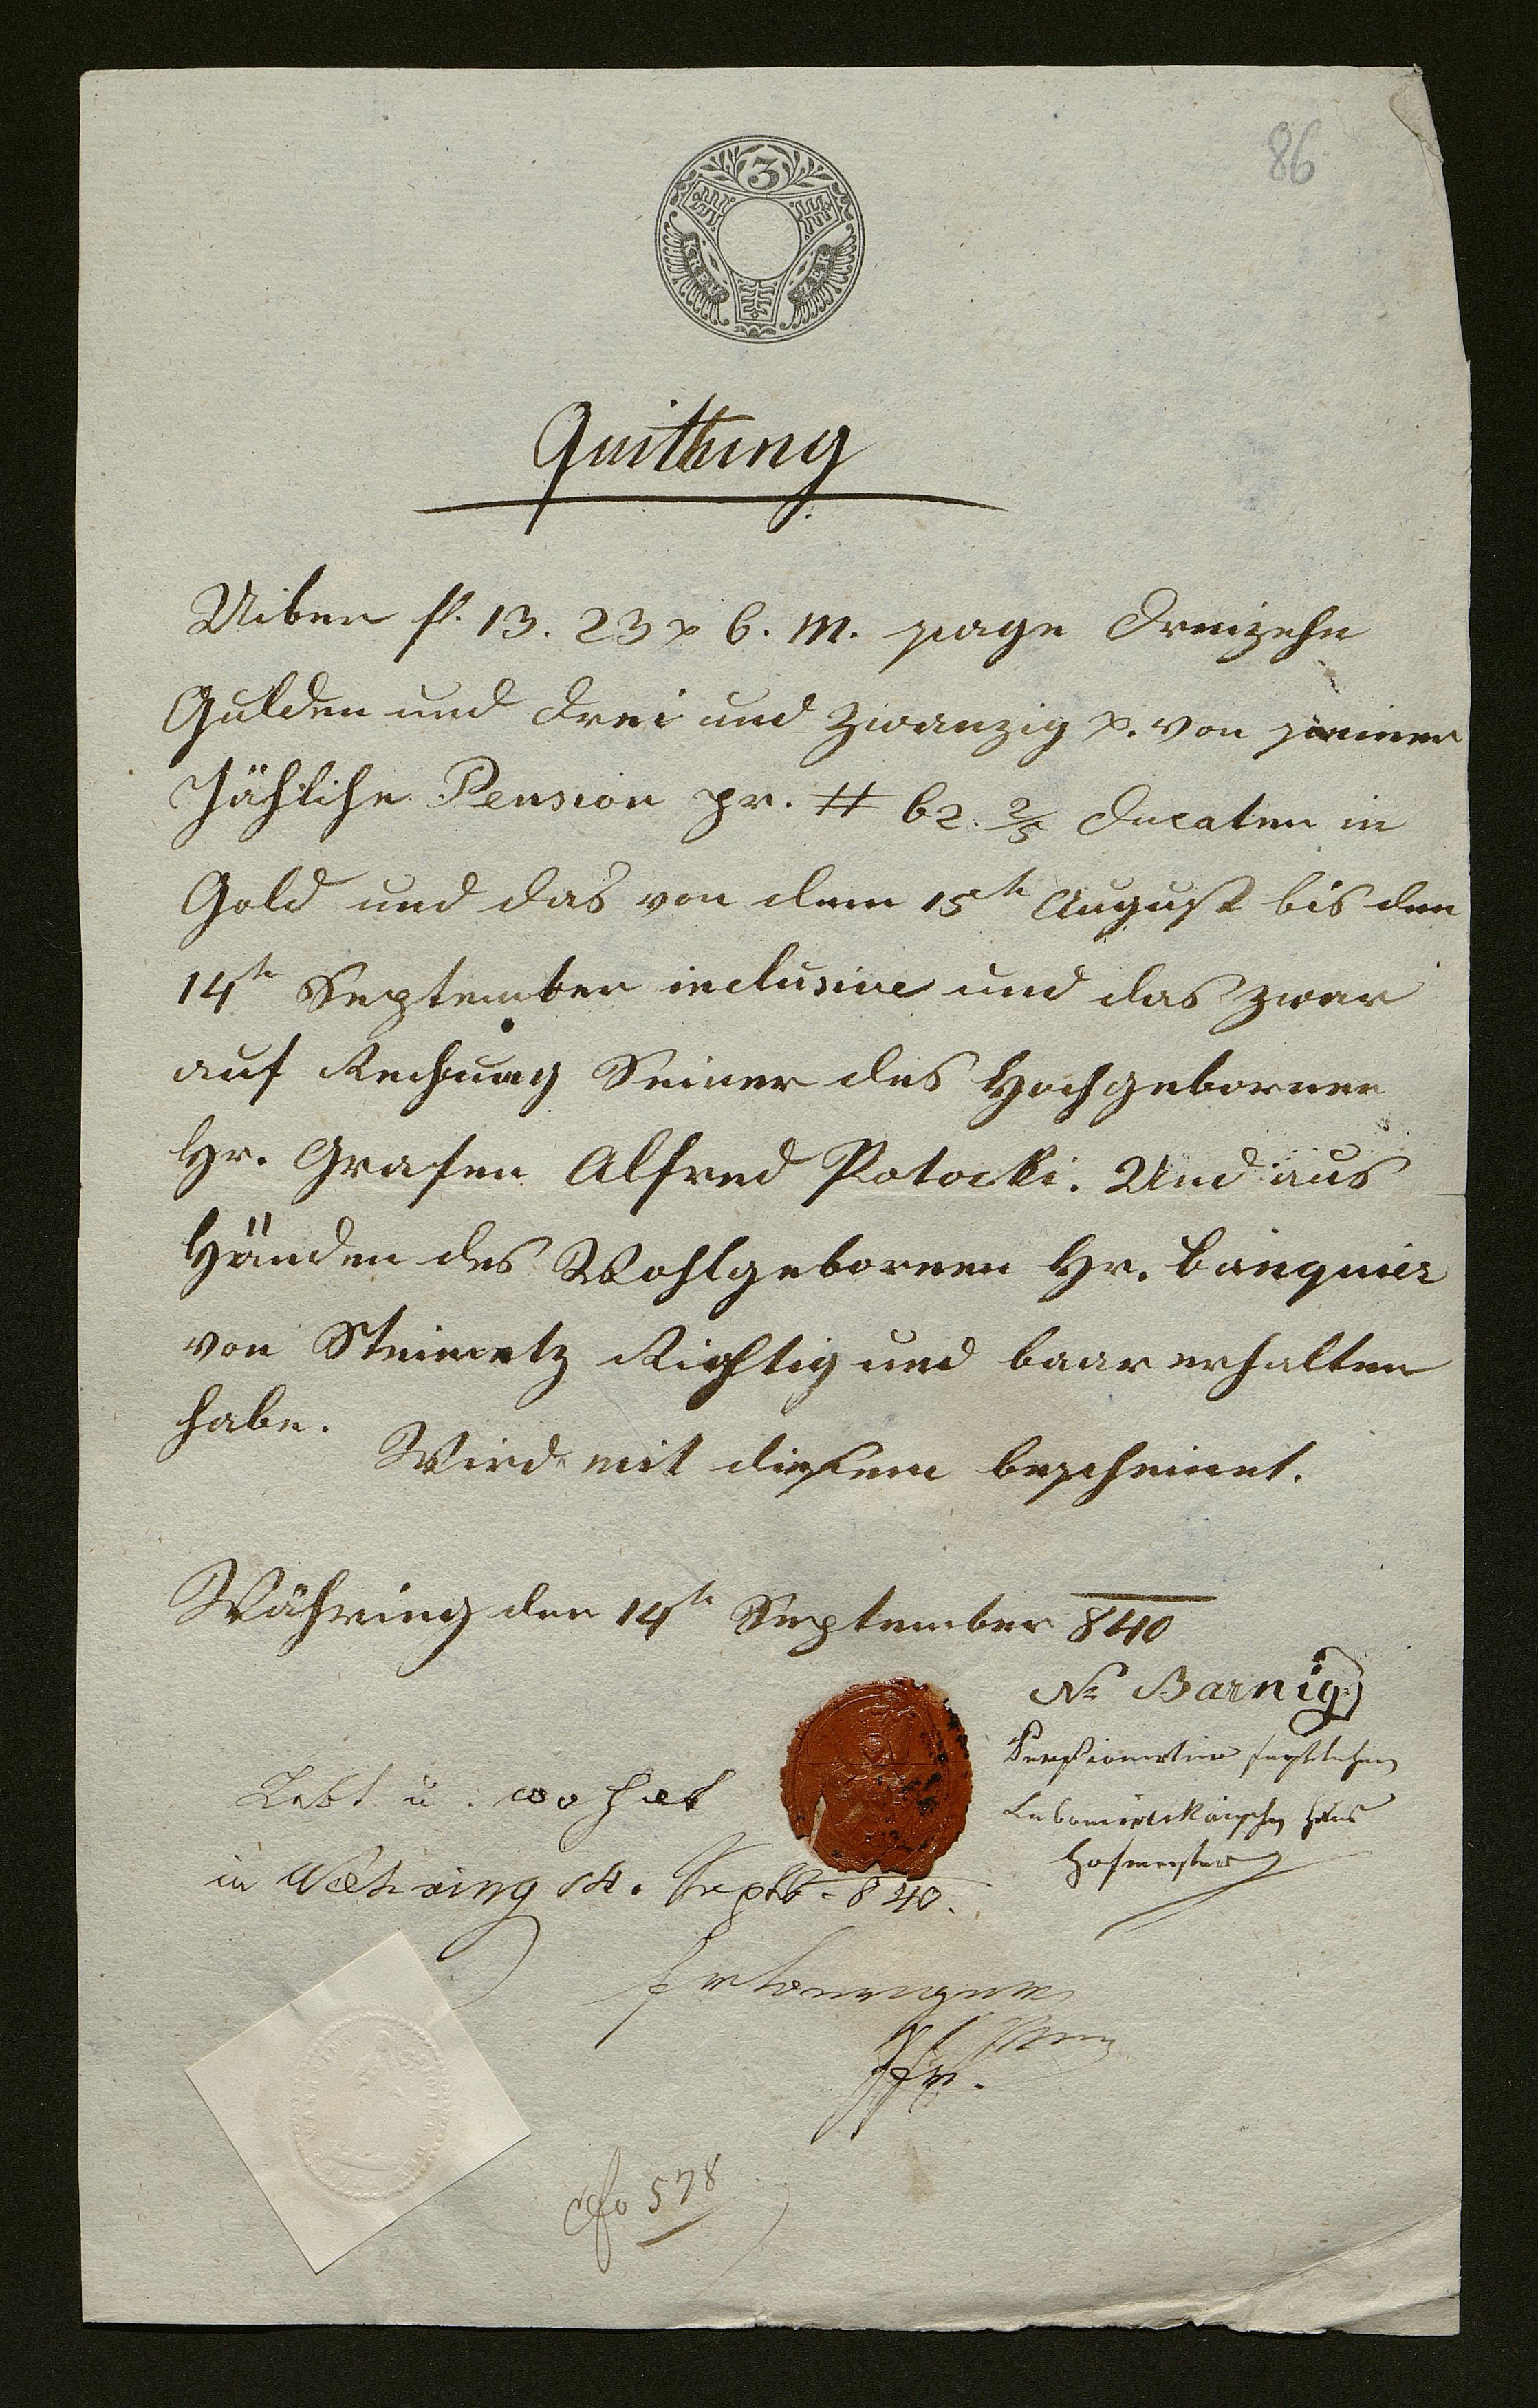 86
3
KREU ZER
Quittung
Uiber fl. 13. 23 x C. M. sage Dreizehn
Gulden und Drei und Zwanzig x. von meiner
Jährliche Pension pr. # 62 2/5 Ducaten in
Gold und das von dem 15te August bis den
14te September inclusive und das zwar
auf Rechnung Seiner des Hochgebornen
Hr. Grafen Alfred Potocki. Und aus
Händen des Wohlgebornen Hr. Banquier
von Steinmetz Richtig und baar erhalten
habe.
Wird mit diesem bescheinet.
Währing den 14te September 840
Barnig
Pensionirter fürstlichen
Lubomirskischen Haus
Hofmeister
Lebt u. wohnt
in Währing 14. Septb. 840.
Pfr.
fo 578